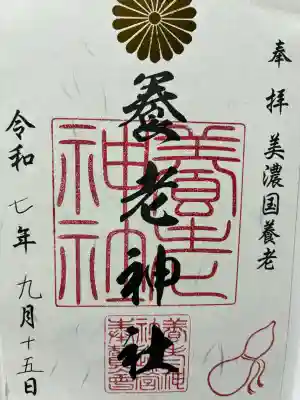 奉拝 美濃国養老
養老神社
養老神社
令和七年九月十五日